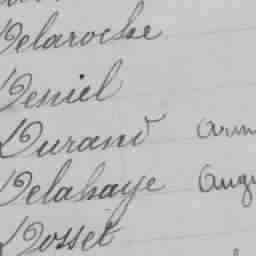 Delaroche
Deniel
Durand
Delahaye
Dosset